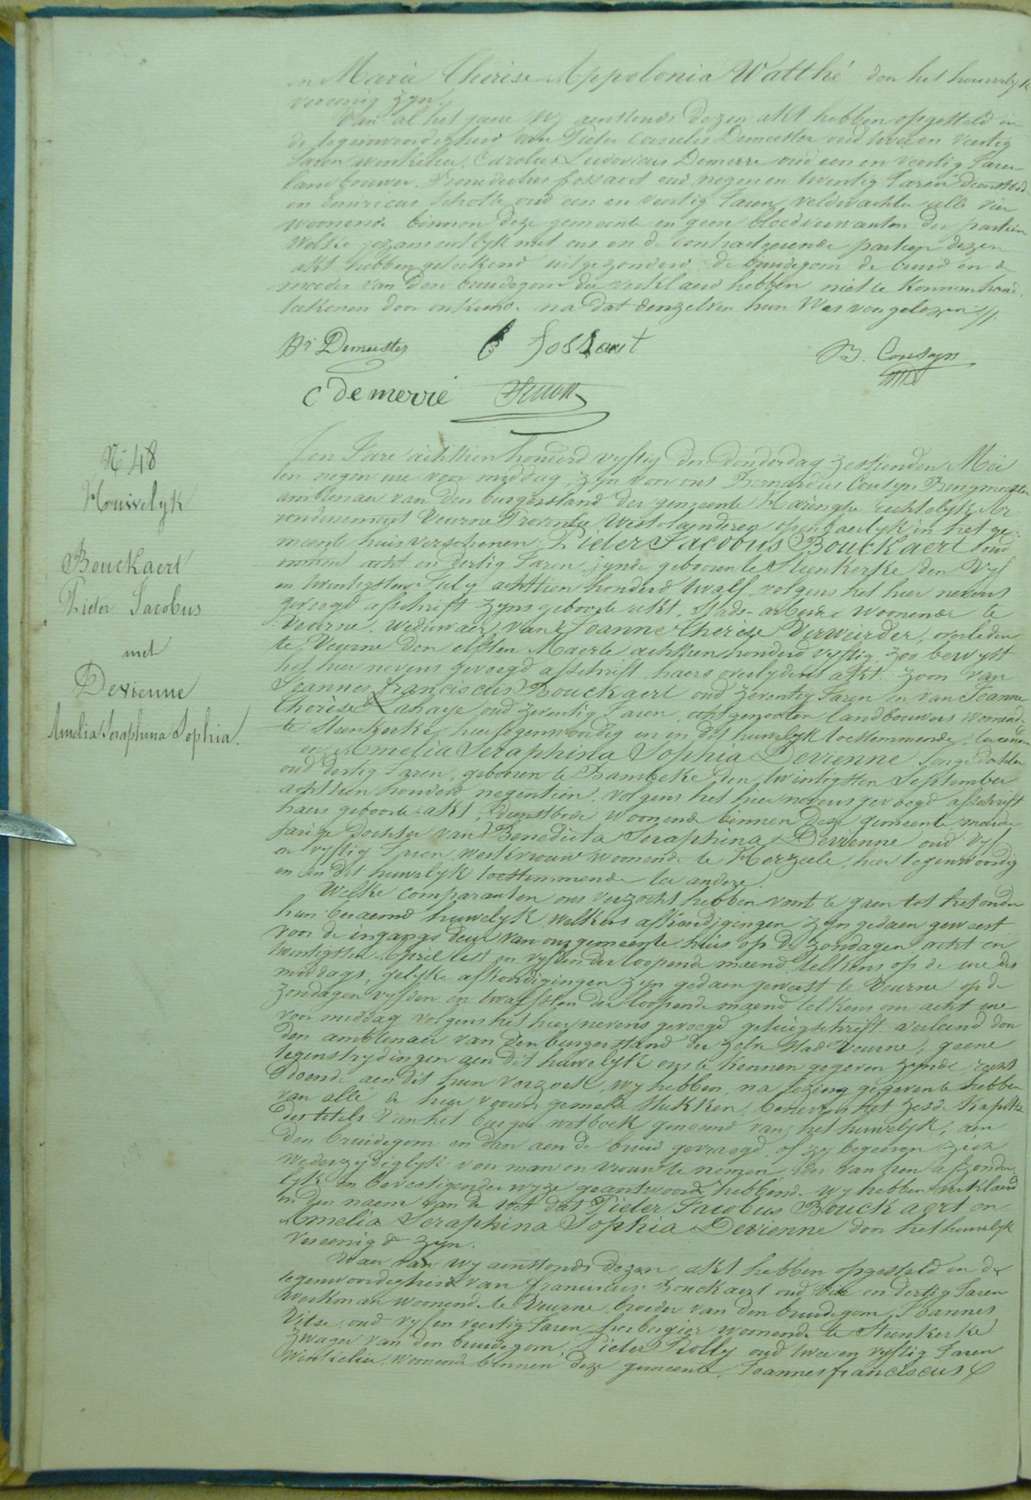 en Marie Thérèse Appolonia Watthé don het houwelyk
vereenig zyn.
Van al het gene wy aenstonds dezen akt hebben opgesteld in
de tegenwoordigheid van Pieter Cornelis Demeester oud twee en veertig
Jaren winkelier, Carolus Ludovicus Demerre oud een en veertig Jaren
landbouwer, Benedictus fossaert oud negen en twintig Jaren dienstbode
en Enricus Scholle oud een en veertig Jaren, veldwachter alle vier
woonende binnen deze gemeente en geen bloedverwanten der partien
Welke gezamentlyk met ons en de contracteerende partyen dezen
akt hebben geteekend uitgezonderd de bruidegom de bruid en de
moeder van den bruidegom die verklaerd hebben niet te konnen
teekenen door onkunde na dat denzelven hun was voorgelezen //
Pr Demeester fossaert B. Cousyn
C demerre
N 48
Houwelyk
Bouckaert
Pieter Jacobus
met
Devienne
Amelia Seraphina Sophia.
Den Jare achttien honderd vyftig den donderdag zestienden Mei
ten negen ure voor middag, zyn voor ons Bernardus Cousyn Burgmeester
ambtenaer van den burgerstand der gemeente Haringhe rechtelyk Ar-
rondissement Veurne Provincie Westvlaenderen openbaerlyk in het ge-
meente huis verschenen: Pieter Jacobus Bouckaert oud
acht en dertig Jaren, zynde geboren te Steenkerke den vyf
en twintigsten July achttien honderd twaelf, volgens het hier nevens
gevoegd afschrift zyns geboorte akt, woonende te
Veurne, weduwaer van Joanne Therese Verweirder, overleden
te Veurne den elfsten Maerte achttien honderd vyftig, zoo bewyst
het hier nevens gevoegd afschrift haers overlydens akt: zoon van
Joannes franciscus Bouckaert oud zeventig Jaren en van Joanne
Therese Lahaye oud zeventig Jaren, echtgenooten landbouwers woonende
te Steenkerke, hier tegenwoordig en in dit huwelyk toestemmende, ter eenen
en Amelia Seraphina Sophia Devienne Jonge dochter
oud dertig Jaren, geboren te Bambeke den twintigsten September
achttien honderd negentien, volgens het hier nevens gevoegd afschrift
haers geboorte akt, dienstbode woonende binnen deze gemeente, meerder
jarige dochter van Benedicta Seraphina Devienne oud vyf
en vyftig Jaren, werkvrouw woonende te Herzeele, hier tegenwoordig
en in dit huwelyk toestemmende ter andere.
Welke comparanten ons verzocht hebben voort te gaen tot het onder
hun beraemd huwelyk welkers afkondigingen zyn gedaen geweest
voor de ingangs deur van ons gemeente huis op de zondagen acht en
twintigsten April lest en vyfden der loopende maend telkens op de ure des
middags, gelyke afkondigingen zyn gedaen geweest te Veurne op de
zondagen vyfden en twaelfsten der loopende maend telkens om acht ure
voor middag volgens het hier nevens gevoegd getuigschrift verleend door
den ambtenaer van den burgerstand der zelve stad Veurne, geene
tegenstrydingen aen dit huwelyk ons te kennen gegeven zynde recht
doende aen dit hun verzoek, wy hebben, na lezing gegeven te hebben
van alle de hier vooren gemelde stukken, benevens het zesde kapittel
des titels van het burger wetboek genaemd van het huwelyk, aen
den bruidegom en dan aen de bruid gevraegd of zy begeeren zich
wederzydiglyk voor man en vrouw te nemen, elk van hun afzonder
lyk en bevestigender wyze geantwoord hebbende, wy hebben verklaerd
in den naem van de wet dat Pieter Jacobus Bouckaert en
Amelia Seraphina Sophia Devienne door het huwelyk
vereenigd zyn.
Waer van wy aenstonds dezen akt hebben opgesteld in de
tegenwoordigheid van franciscus Bouckaert oud een dertig Jaren
Werkman woonende te Veurne, broeder van den bruidegom, Joannes
Vilse, oud vyf en veertig Jaren, herbergier woonende te Steenkerke
Zwager van den bruidegom, Pieter Bolly oud twee en vyftig Jaren
Winkelier, woonende binnen deze gemeente, Joannes franciscus